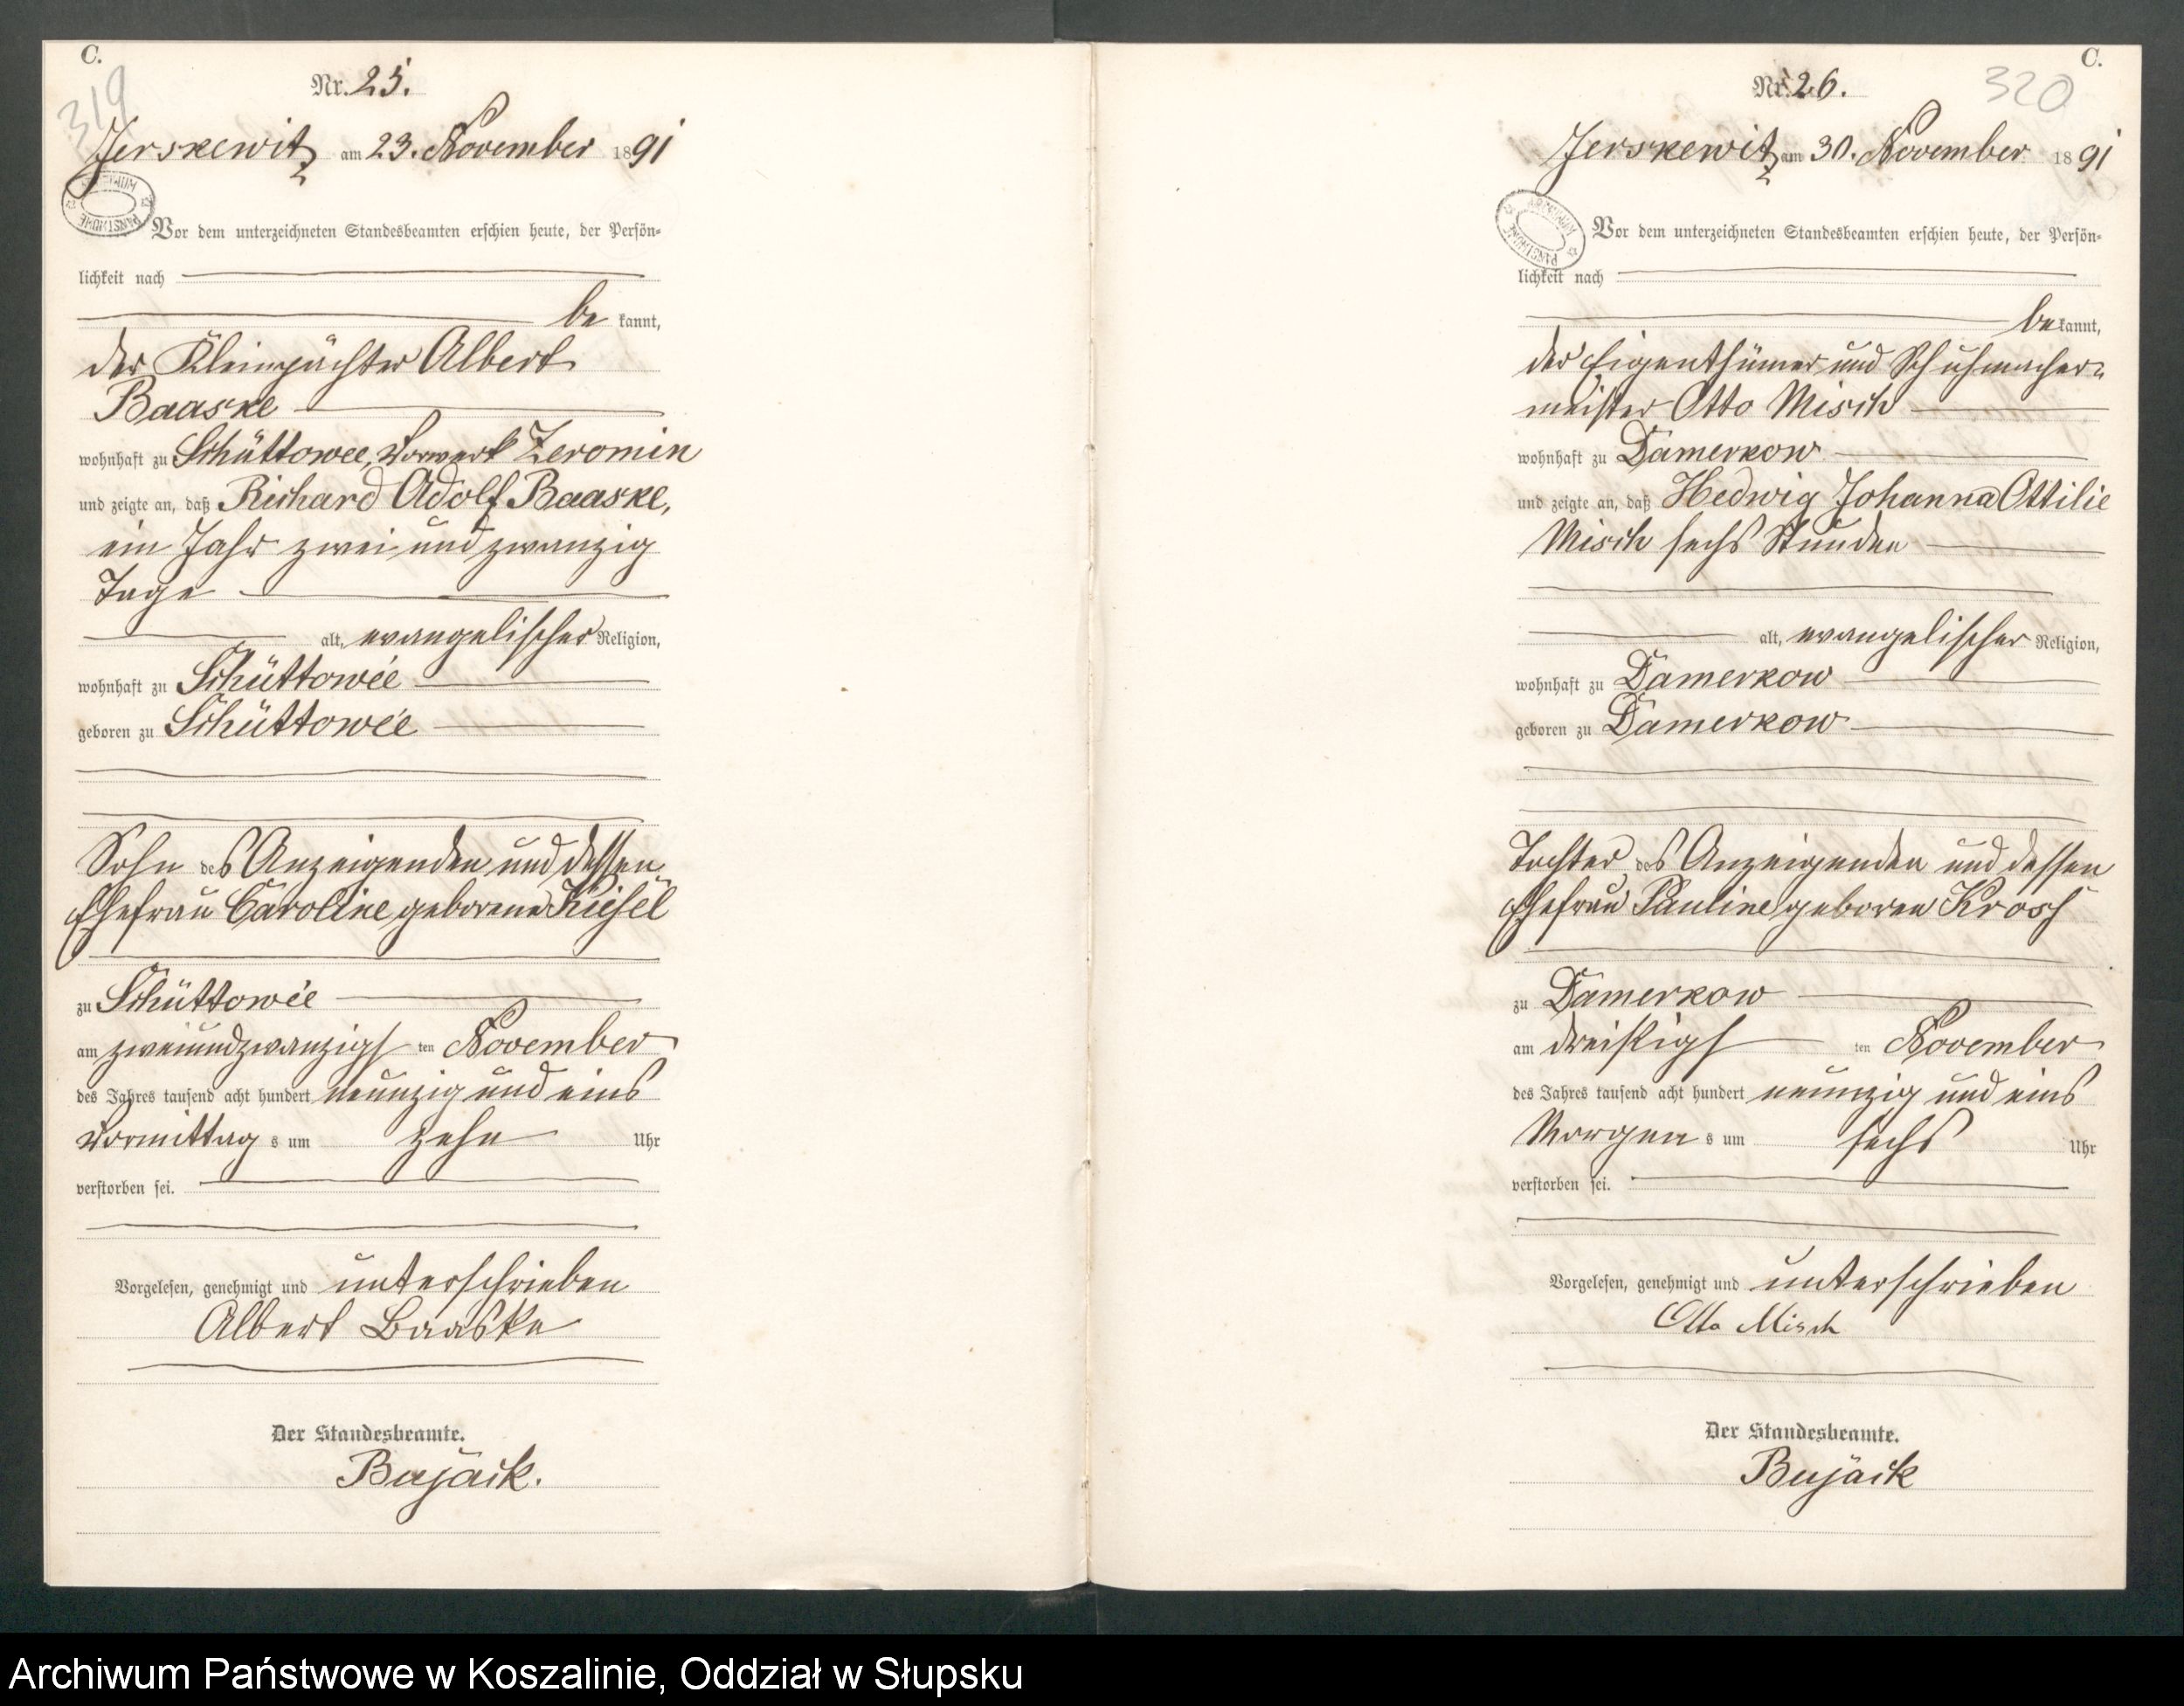 C.
319
Nr. 25.
Jerskewitz am 23. November 1891
ARCHIWUM PAŃSTWOWE
Vor dem unterzeichneten Standesbeamten erschien heute, der Persön-
lichkeit nach
be kannt,
der Kleinpächter Albert
Baaske
wohnhaft zu Schüttowee, Vorwerk Zeromin
und zeigte an, daß Richard Adolf Baaske,
ein Jahr zwei und zwanzig
Tage
alt, evangelischer Religion,
wohnhaft zu Schüttowée
geboren zu Schüttowée
Sohn des Anzeigenden und dessen
Ehefrau Caroline geborene Kiesel
zu Schüttowée
am zweiundzwanzigsten November
des Jahres tausend acht hundert neunzig und eins
Vormittag s um zehn Uhr
verstorben sei.
Vorgelesen, genehmigt und unterschrieben
Albert Baaske
Der Standesbeamte.
Bujack.
C.
320
Nr. 26.
Jerskewitz am 30. November 1891
ARCHIWUM PAŃSTWOWE
Vor dem unterzeichneten Standesbeamten erschien heute, der Persön-
lichkeit nach
be kannt,
der Eigenthümer und Schuhmacher-
meister Otto Misch
wohnhaft zu Damerkow
und zeigte an, daß Hedwig Johanna Ottilie
Misch sechs Stunden
alt, evangelischer Religion,
wohnhaft zu Damerkow
geboren zu Damerkow
Tochter des Anzeigenden und dessen
Ehefrau Pauline geboren Kross
zu Damerkow
am dreißigsten November
des Jahres tausend acht hundert neunzig und eins
Morgen s um sechs Uhr
verstorben sei.
Vorgelesen, genehmigt und unterschrieben
Otto Misch
Der Standesbeamte.
Bujack
Archiwum Państwowe w Koszalinie, Oddział w Słupsku